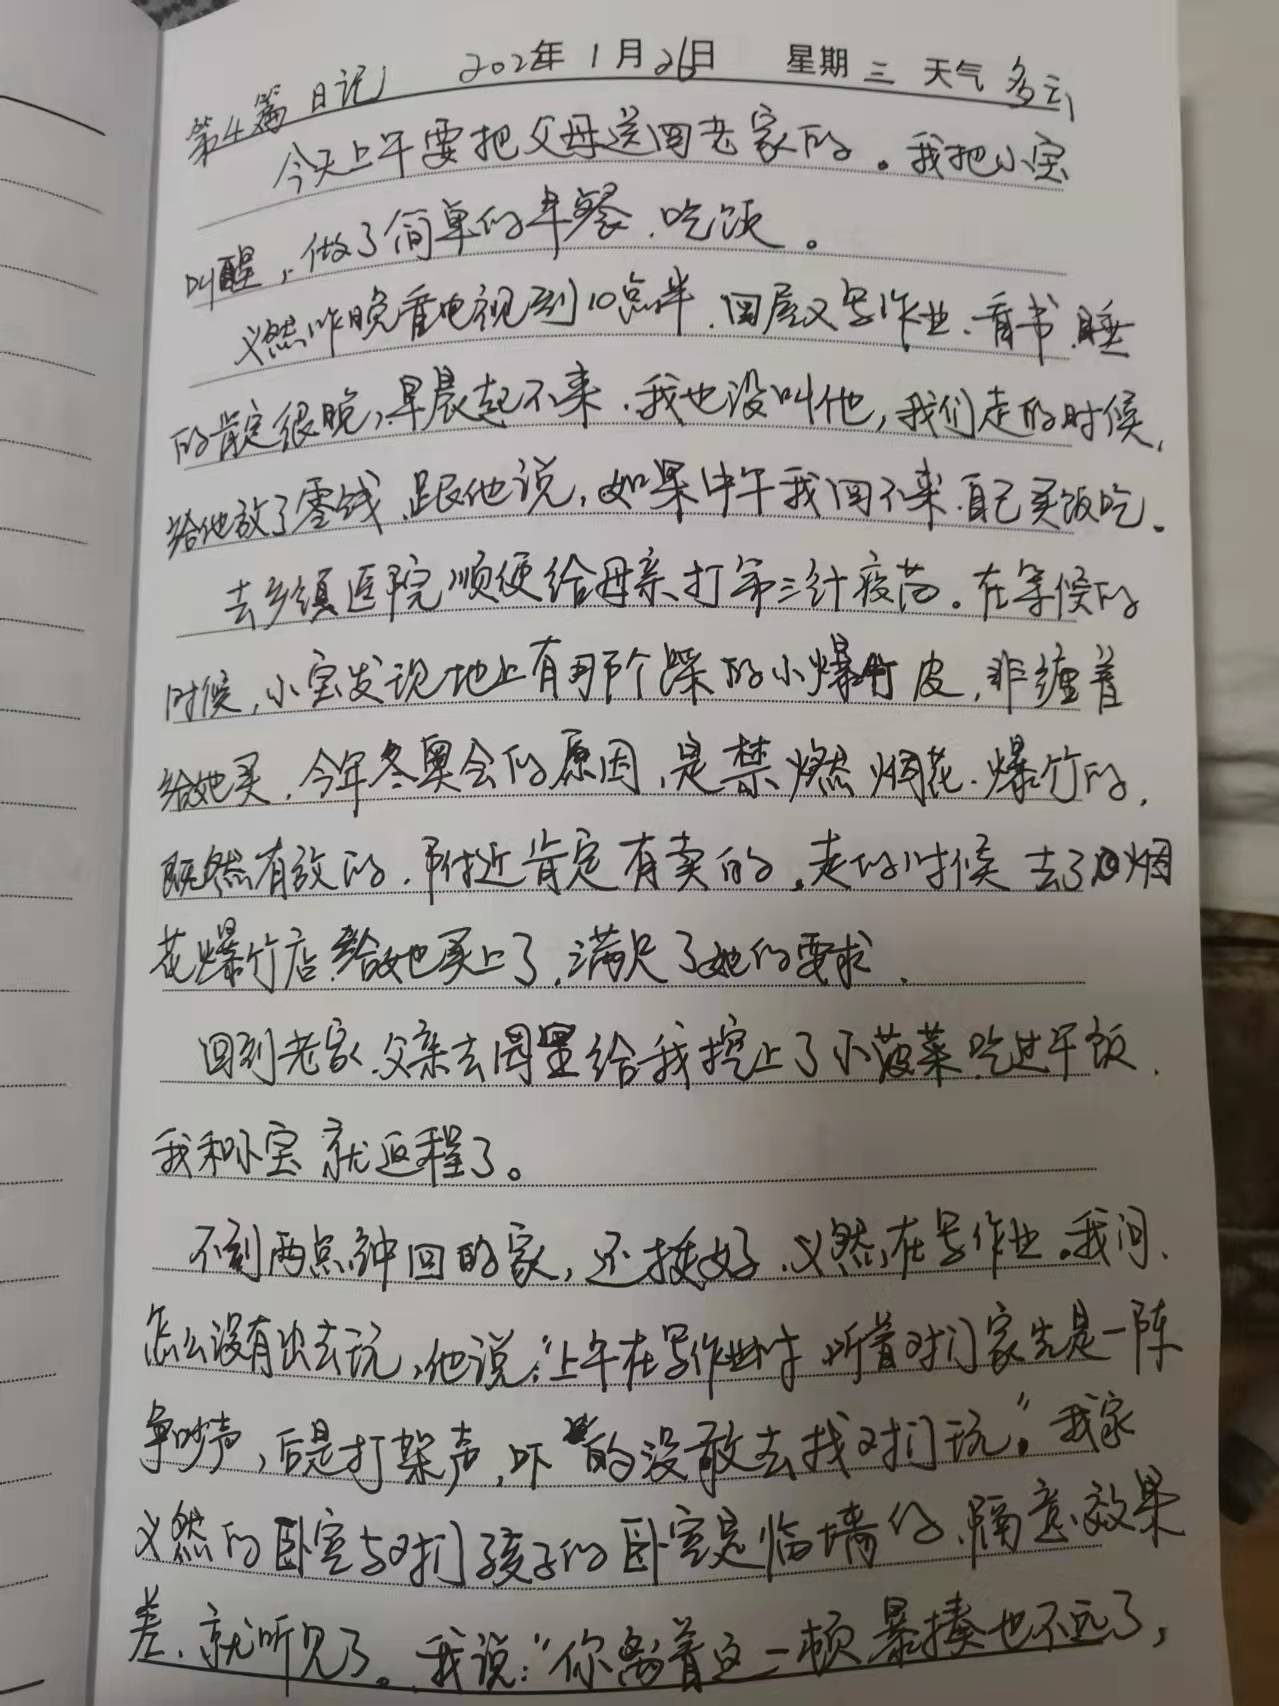 第4篇日记 2022年1月26日 星期三 天气多云
今天上午要把父母送回老家的。我把小宝
叫醒,做了简单的早餐,吃饭。
义然昨晚看电视到10点半,回屋又写作业、看书,睡
的肯定很晚,早晨起不来,我也没叫他,我们走的时候,
给他放了零钱,跟他说,如果中午我回不来,自己买饭吃。
去乡镇医院顺便给母亲打第三针疫苗。在等候的
时候,小宝发现地上有那个踩的小爆竹皮,非缠着
给她买,今年冬奥会的原因,是禁燃烟花、爆竹的,
既然有放的,附近肯定有卖的,走的时候去了烟
花爆竹店给她买上了,满足了她的要求,
回到老家,父亲去园里给我挖上了小菠菜,吃过午饭,
我和小宝就返程了。
不到两点钟回的家,还挺好,义然在写作业,我问,
怎么没有出去玩,他说:“上午在写作业时,听着对门家先是一阵
争吵声,后是打架声,吓的没敢去找对门玩。”我家
义然的卧室与对门孩子的卧室是临墙的,隔音效果
差,就听见了。我说:“你离着这一顿暴揍也不远了,